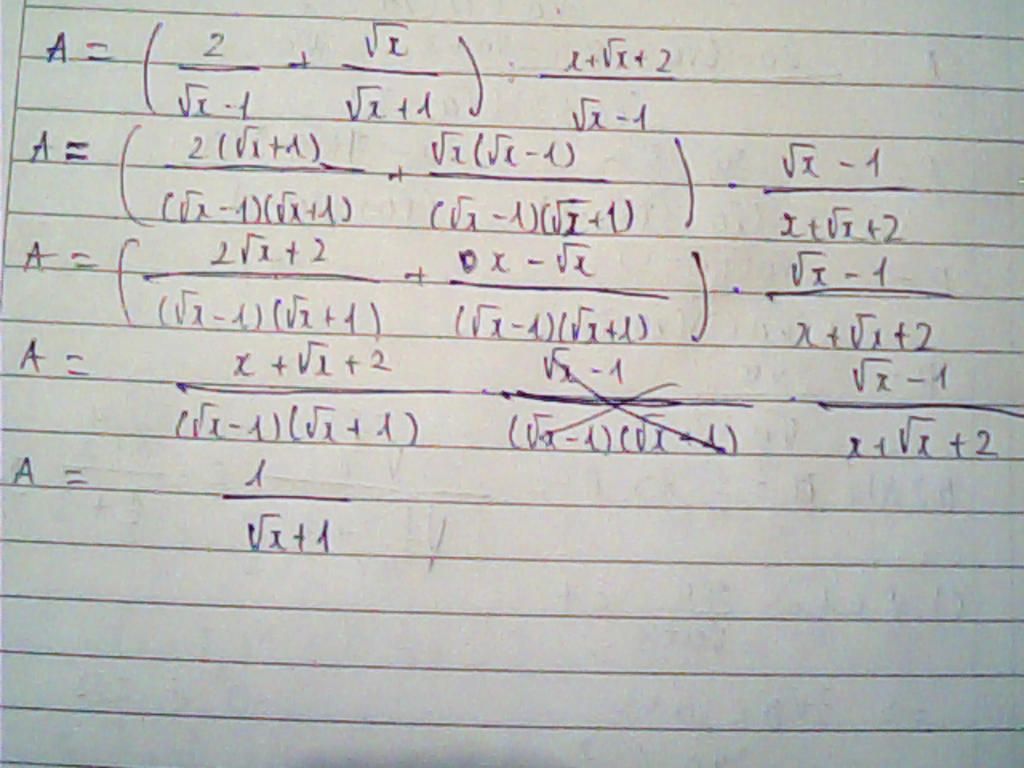 A = ( 2/(√x - 1) + √x/(√x + 1) ) : (x + √x + 2)/(√x - 1)
A = ( 2(√x + 1)/((√x - 1)(√x + 1)) + √x(√x - 1)/((√x - 1)(√x + 1)) ) . (√x - 1)/(x + √x + 2)
A = ( (2√x + 2)/((√x - 1)(√x + 1)) + (x - √x)/((√x - 1)(√x + 1)) ) . (√x - 1)/(x + √x + 2)
A = (x + √x + 2)/((√x - 1)(√x + 1)) . (√x - 1)/(x + √x + 2)
A = 1/(√x + 1)